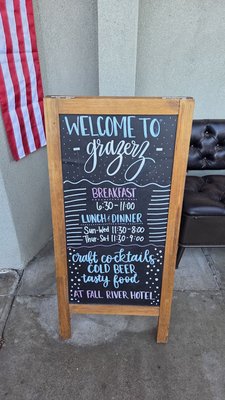 WELCOME TO
- grazerz -
BREAKFAST
6:30-11:00
LUNCH & DINNER
Sun-Wed 11:30-8:00
Thur-Sat 11:30-9:00
craft cocktails
COLD BEER
tasty food
AT FALL RIVER HOTEL